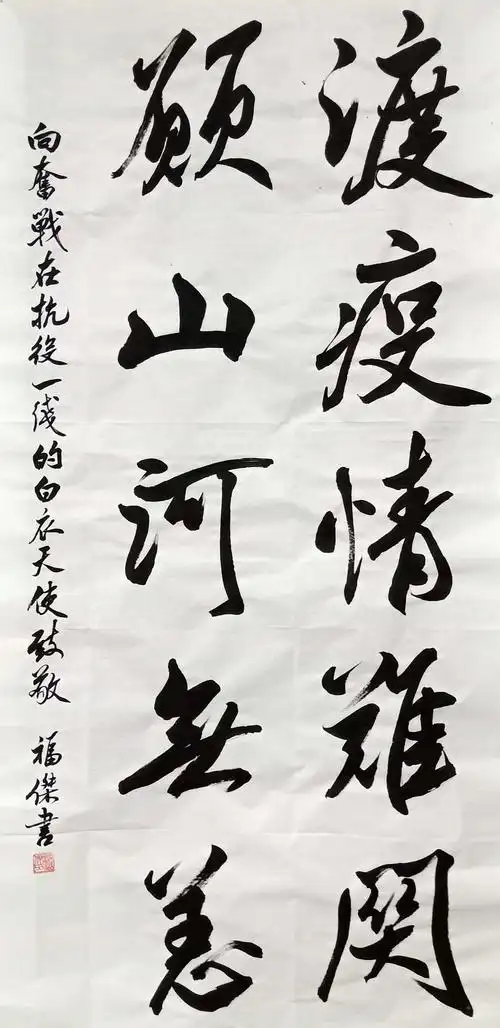 渡疫情難関
願山河無恙
向奮戰在抗疫一线的白衣天使致敬 福傑書